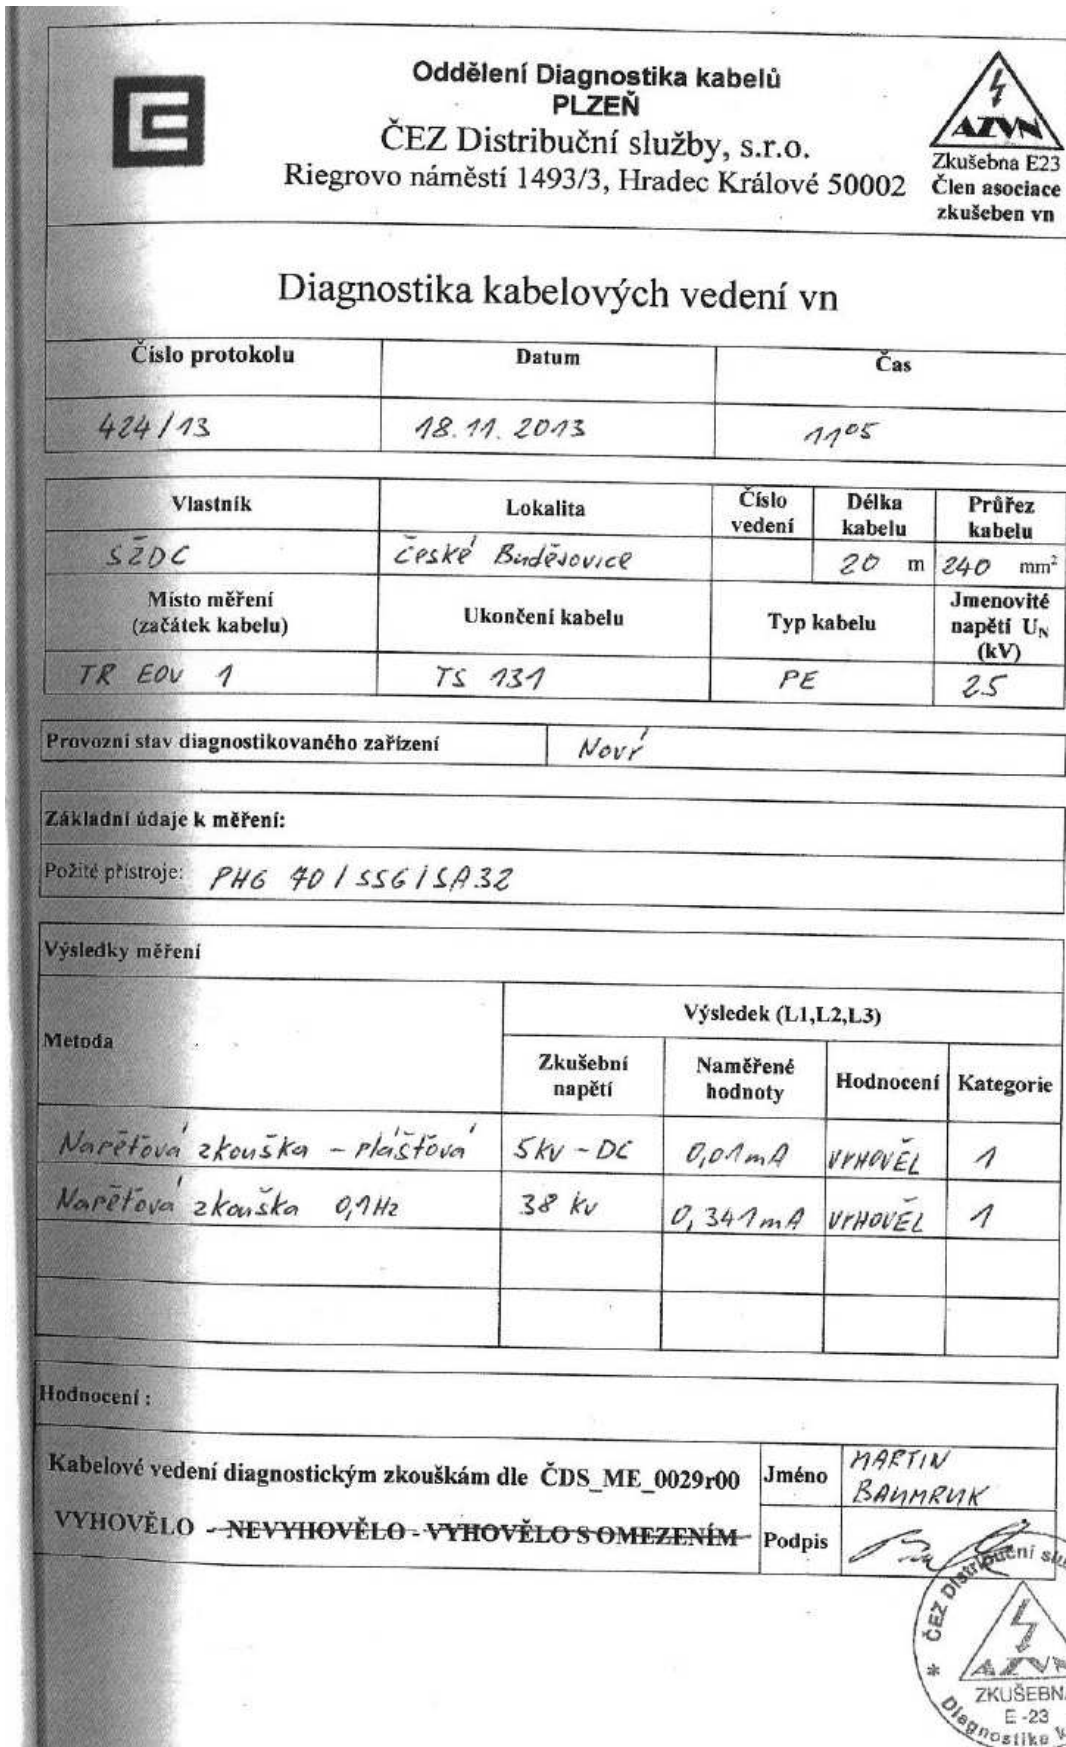 Oddělení Diagnostika kabelů
PLZEŇ
ČEZ Distribuční služby, s.r.o.
Riegrovo náměstí 1493/3, Hradec Králové 50002
AZVN
Zkušebna E23
Člen asociace
zkušeben vn
Diagnostika kabelových vedení vn
Číslo protokolu Datum Čas
424/13 18.11.2013 11⁰⁵
Vlastník Lokalita Číslo vedení Délka kabelu Průřez kabelu
SŽDC České Budějovice 20 m 240 mm²
Místo měření (začátek kabelu) Ukončení kabelu Typ kabelu Jmenovité napětí U_N (kV)
TR EOV 1 TS 131 PE 25
Provozní stav diagnostikovaného zařízení Nový
Základní údaje k měření:
Požité přístroje: PHG 70 / SSG / SA32
Výsledky měření
Metoda Výsledek (L1,L2,L3)
Zkušební napětí Naměřené hodnoty Hodnocení Kategorie
Napěťová zkouška - plášťová 5kV - DC 0,01mA VYHOVĚL 1
Napěťová zkouška 0,1Hz 38 kV 0,341mA VYHOVĚL 1
Hodnocení :
Kabelové vedení diagnostickým zkouškám dle ČDS_ME_0029r00
VYHOVĚLO - NEVYHOVĚLO - VYHOVĚLO S OMEZENÍM
Jméno MARTIN BAUMRUK
Podpis
* ČEZ Distribuční
AZVN
ZKUŠEBNA
E-23
Diagnostika